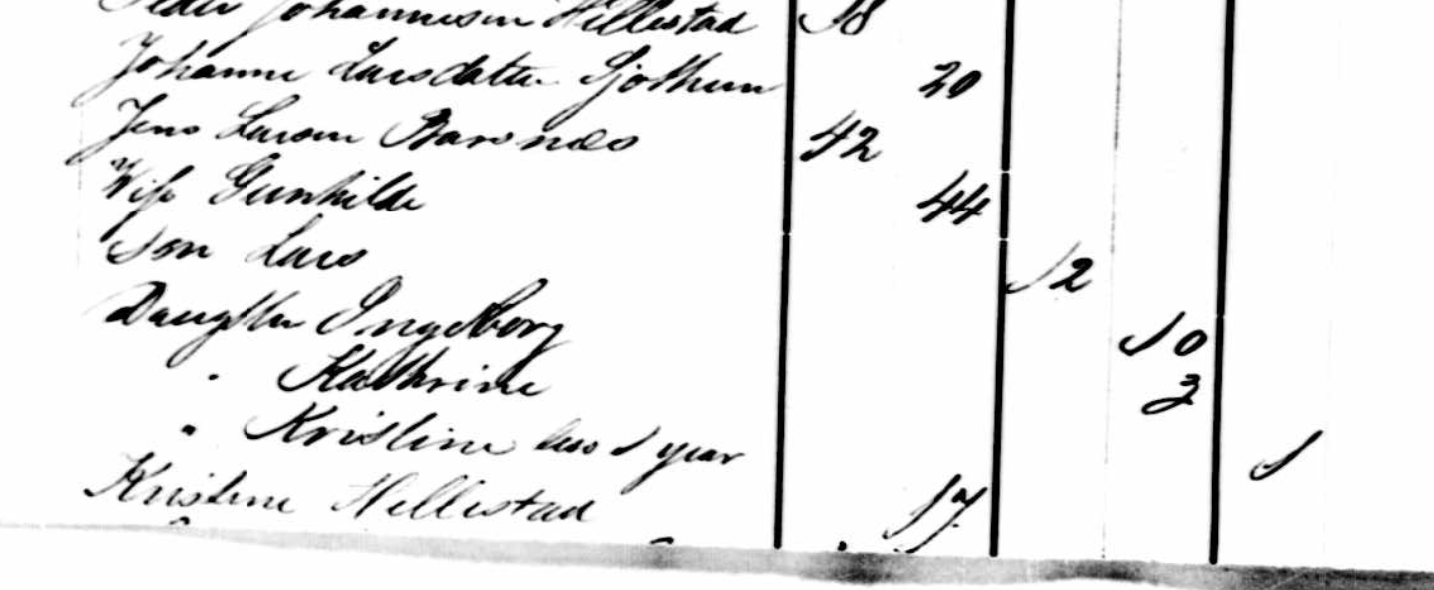 Peder Johannesen Hillestad 18
Johanne Larsdatter 20
Jens Larsen Barsnæs 42
Wife Gunhilde 44
Son Lars 12
Daughter Ingeborg 10
" Kathrine 3
" Kristine less 1 year 1
Kristine Hillestad 17